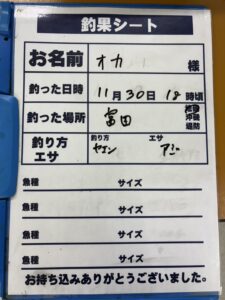 釣果シート
お名前 オカ 様
釣った日時 11月30日 18時頃
釣った場所 富田 沖磯 堤防
釣り方 エサ 釣り方 ヤエン エサ アジ
魚種 サイズ
魚種 サイズ
魚種 サイズ
魚種 サイズ
お持ち込みありがとうございました。